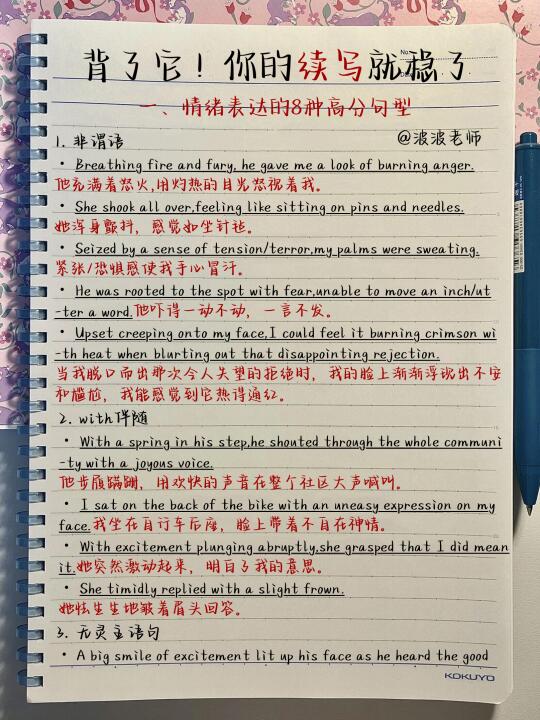 背了它！你的续写就稳了
No.
一、情绪表达的8种高分句型
1. 非谓语
@波波老师
• Breathing fire and fury, he gave me a look of burning anger.
他充满着怒火,用灼热的目光怒视着我。
• She shook all over,feeling like sitting on pins and needles.
她浑身颤抖，感觉如坐针毡。
• Seized by a sense of tension/terror,my palms were sweating.
紧张/恐惧感使我手心冒汗。
• He was rooted to the spot with fear,unable to move an inch/ut
-ter a word.他吓得一动不动，一言不发。
• Upset creeping onto my face,I could feel it burning crimson wi
-th heat when blurting out that disappointing rejection.
当我脱口而出那次令人失望的拒绝时，我的脸上渐渐浮现出不安
和尴尬，我能感觉到它热得通红。
2. with伴随
• With a spring in his step,he shouted through the whole communi
-ty with a joyous voice.
他步履蹒跚，用欢快的声音在整个社区大声喊叫。
• I sat on the back of the bike with an uneasy expression on my
face.我坐在自行车后座，脸上带着不自在神情。
• With excitement plunging abruptly,she grasped that I did mean
it.她突然激动起来，明白了我的意思。
• She timidly replied with a slight frown.
她怯生生地皱着眉头回答。
3. 无灵主语句
• A big smile of excitement lit up his face as he heard the good
KOKUYO